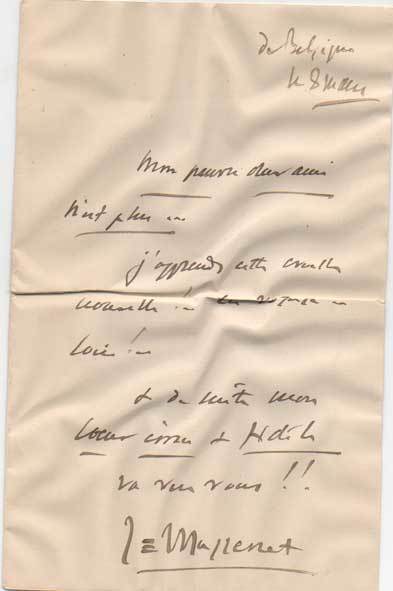 de Belgique
le 8 mars
Mon pauvre cher ami
n'est plus —
j'apprends cette cruelle
nouvelle !—
loin !—
& de suite mon
cœur ému & fidèle
va vers vous !!
J. Massenet